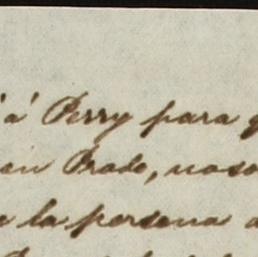 á Perry para
en Prado, noso
la persona